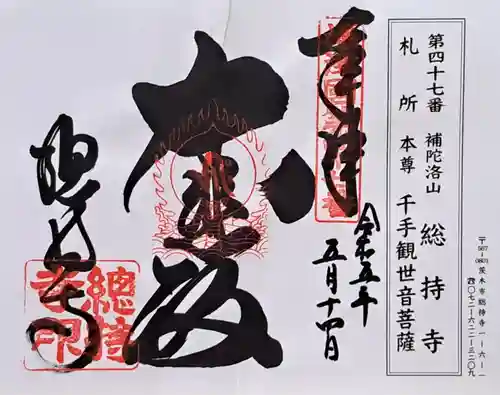 第四十七番 補陀洛山 総持寺
札所本尊 千手観世音菩薩
〒567-0801 茨木市総持寺一-六-一
☎〇七二-六二二-三二〇九
奉拝
令和五年
五月十四日
大悲殿
総持寺
總持
寺印